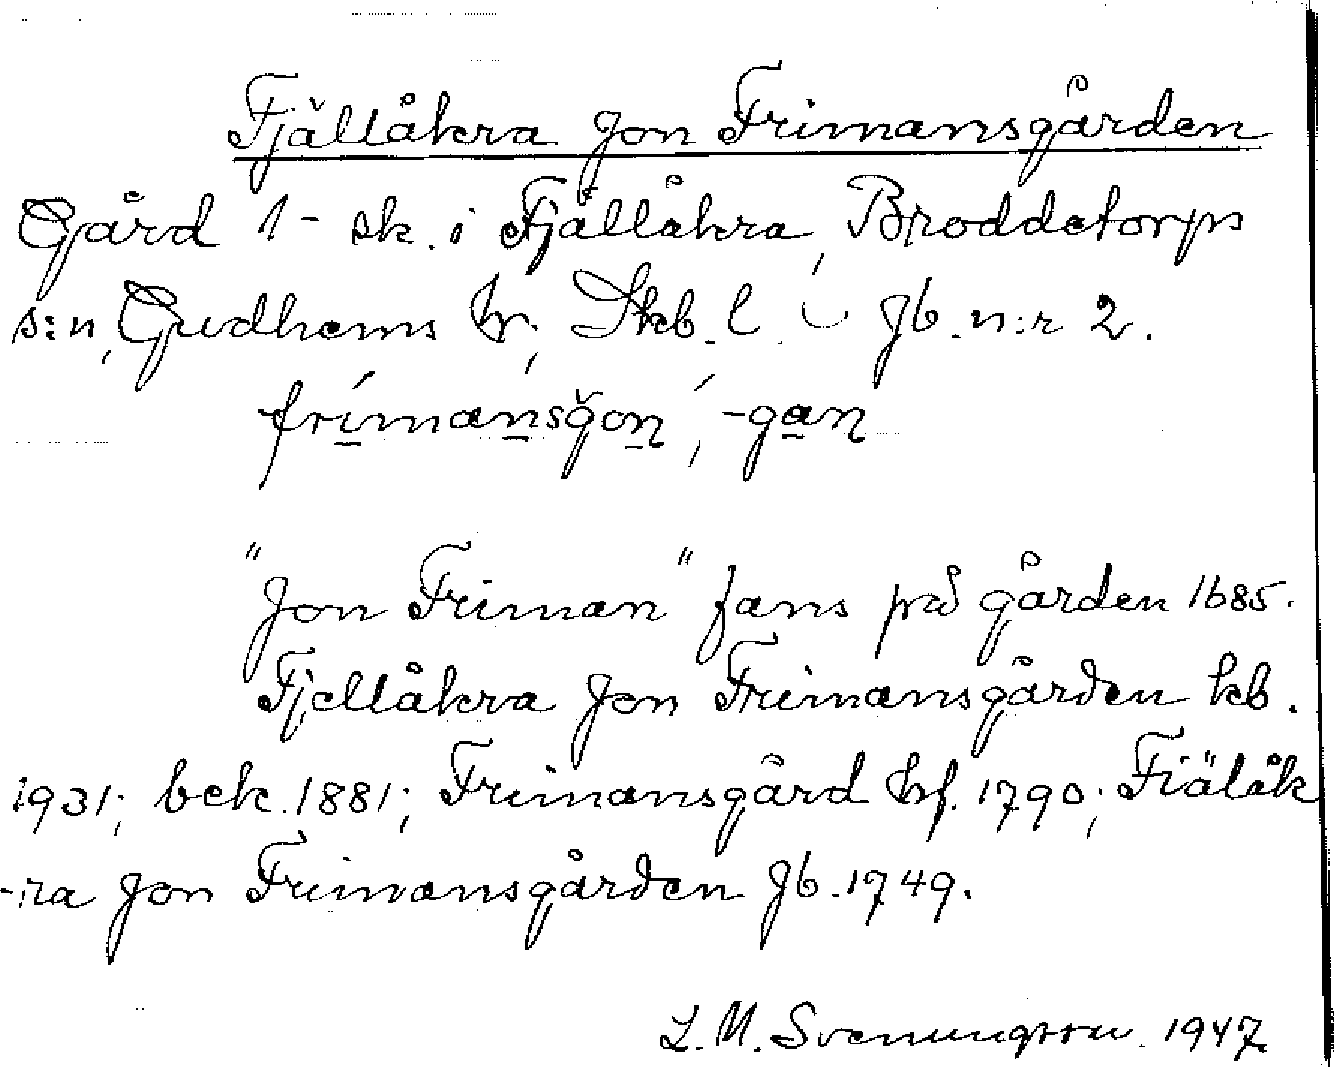 Fjällåkra Jon Frimansgården
Gård 1 - sk. i Fjällåkra, Broddetorps
s:n, Gudhems hr; Skb. l. Jb. n:r 2.
frimansgon, -gan
"Jon Friman" fans på gården 1685.
Fjellåkra Jon Frimansgården kb.
1931; bek. 1881; Frimansgård hf. 1790; Fiälåk
-ra Jon Frimansgården Jb. 1749.
L. M. Svenungsson 1947.